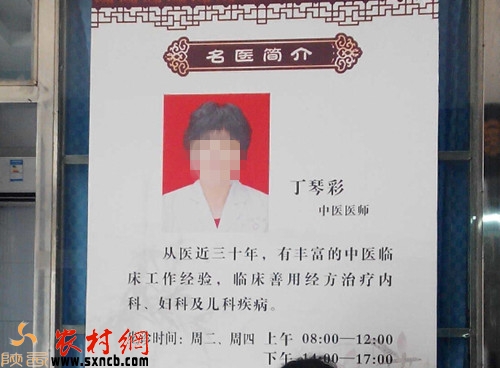 名医简介
丁琴彩
中医医师
从医近三十年,有丰富的中医临
床工作经验,临床善用经方治疗内
科、妇科及儿科疾病。
时间:周二、周四 上午 08:00—12:00
下午 14:00—17:00
农村网
www.sxncb.com